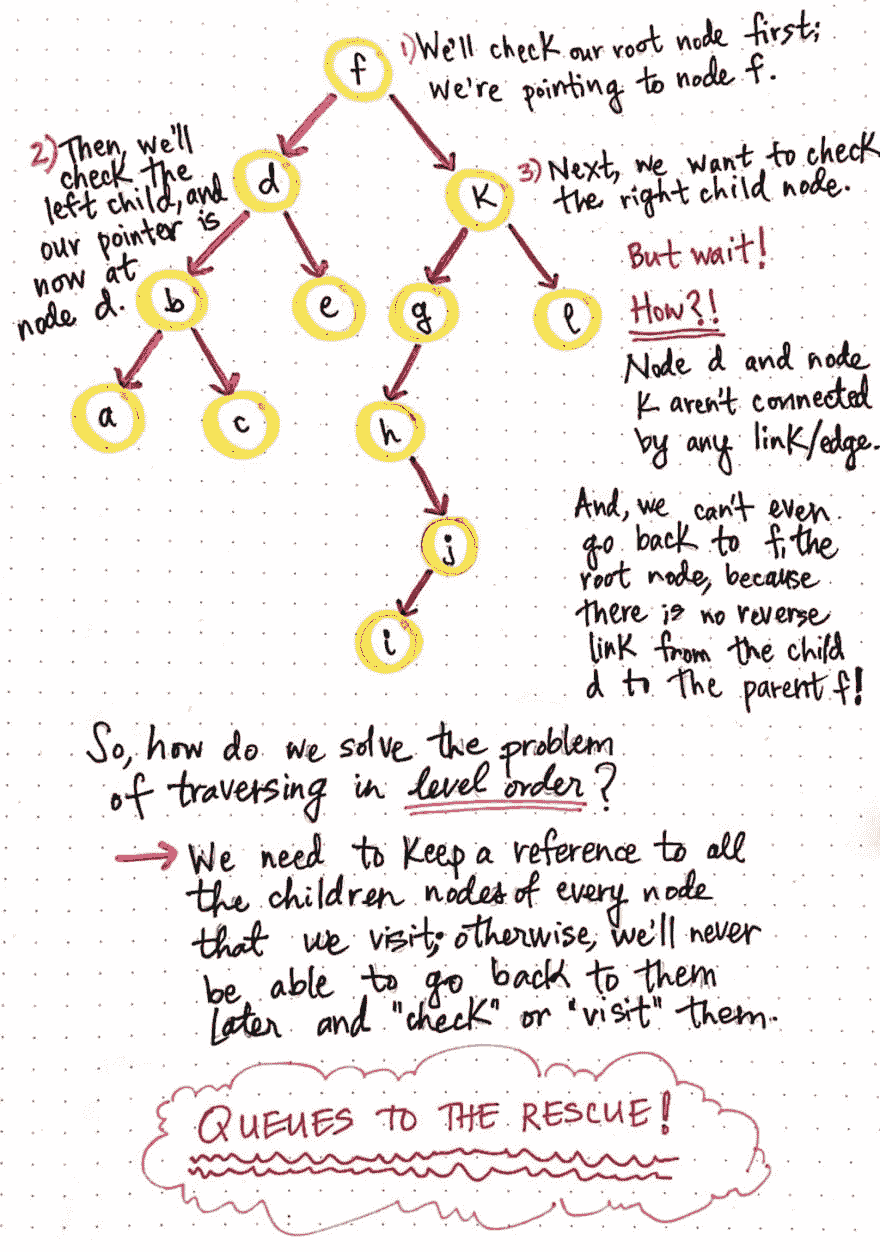 f
1) We'll check our root node first;
we're pointing to node f.
2) Then, we'll
check the
left child, and
our pointer is
now at
node d.
d
k
3) Next, we want to check
the right child node.
But wait!
How?!
Node d and node
k aren't connected
by any link/edge.
b
e
g
l
a
c
h
And, we can't even
go back to f, the
root node, because
there is no reverse
link from the child
d to the parent f!
j
i
So, how do we solve the problem
of traversing in level order?
→ We need to keep a reference to all
the children nodes of every node
that we visit; otherwise, we'll never
be able to go back to them
later and "check" or "visit" them.
QUEUES TO THE RESCUE!